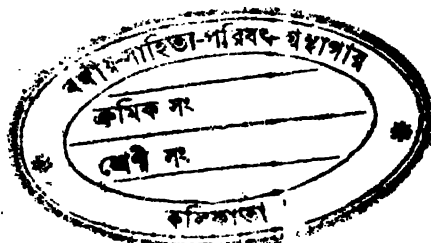 বঙ্গীয়-সাহিত্য-পরিষৎ গ্রন্থাগার
ক্রমিক সং
শ্রেণী সং
কলিকাতা